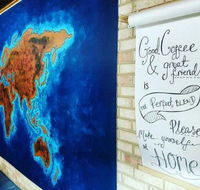 Good Coffee
& great
friends
is
the Perfect Blend
Please
Make yourself
at
Home